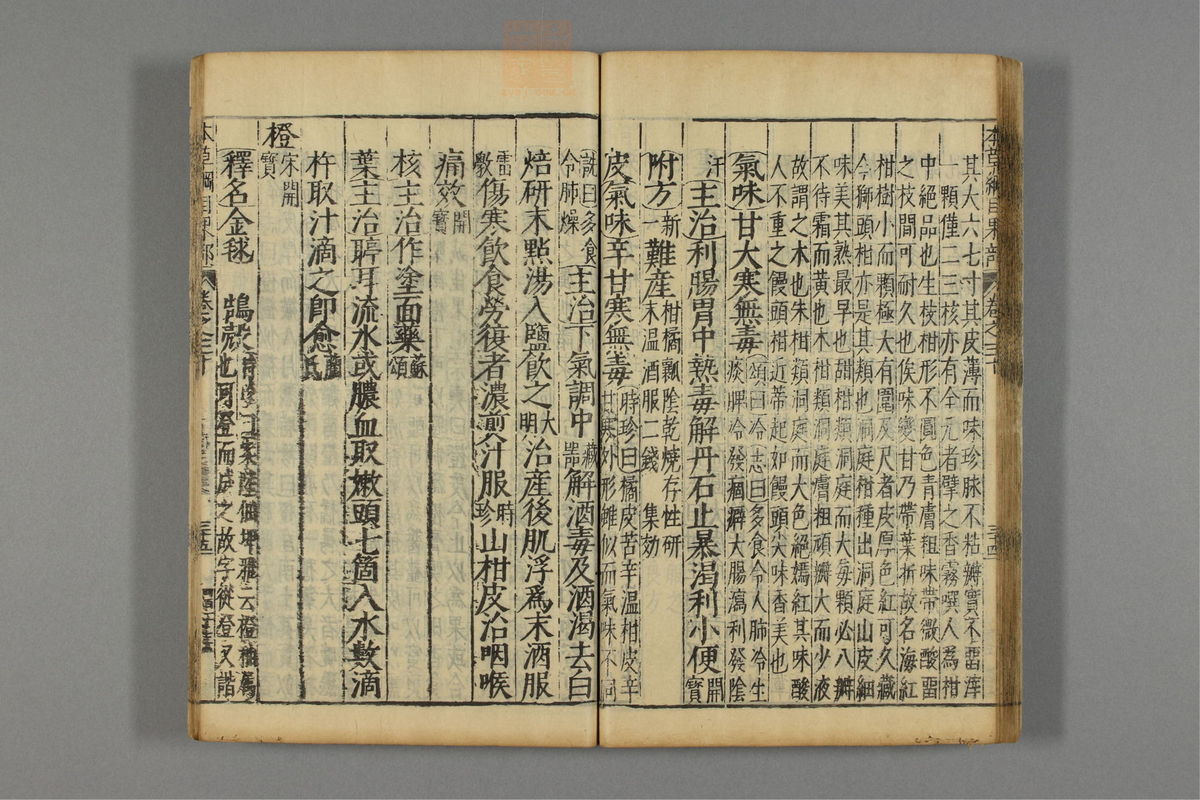 本草綱目果部 卷之三十
其大六七寸其皮薄而味珍脉不粘瓣實不留滓
一顆僅二三核亦有全无者擘之香霧噀人為柑
中絶品也生枝柑形不圓色青膚粗味帶微酸留
之枝間可耐久也俟味變甘乃帶葉折故名海紅
柑樹小而顆極大有圍及尺者皮厚色紅可久藏
今獅頭柑亦是其類也洞庭柑種出洞庭山皮細
味美其熟最早也甜柑類洞庭而大每顆必八瓣
不待霜而黃也木柑類洞庭膚粗頑瓣大而少液
故謂之木也朱柑類洞庭而大色絶嫣紅其味酸
人不重之饅頭柑近蒂起如饅頭尖味香美也
氣味甘大寒無毒 頌曰冷志曰多食令人肺冷生
痰脾冷發痼癖大腸瀉利發陰
汗 主治利腸胃中熱毒解丹石止暴渴利小便 開
寶
附方 新
一 難産 柑橘瓤陰乾燒存性研
末温酒服二錢 集効
皮氣味辛甘寒無毒 時珍曰橘皮苦辛温柑皮辛
甘寒外形雖似而氣味不同
詵曰多食
令肺燥 主治下氣調中 藏
器 解酒毒及酒渴去白
焙研末點湯入鹽飲之 大
明 治產後肌浮為末酒服
雷
斅 傷寒飲食勞復者濃煎汁服 時
珍 山柑皮治咽喉
痛效 開
寶
核主治作塗面藥 蘇
頌
葉主治聤耳流水或膿血取嫩頭七箇入水數滴
杵取汁滴之即愈 藺
氏
橙 宋開
寶
釋名金毬 鵠殼
也可登而成之故字從登又諧
本草綱目果部 卷之三十